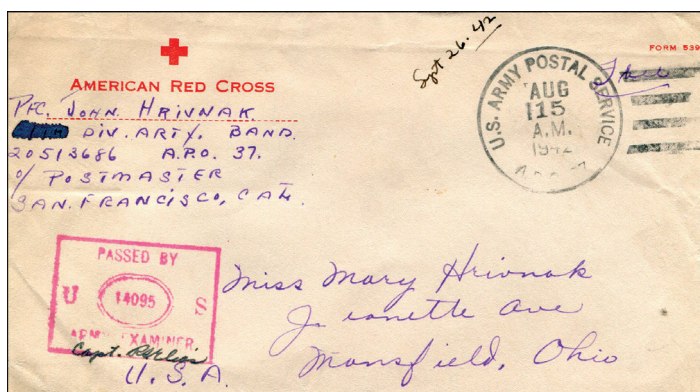 Sept 26. 42
FORM 539
AMERICAN RED CROSS
Free
U.S. ARMY POSTAL SERVICE
AUG
15
A.M.
1942
PFC. JOHN. HRIVNAK.
DIV. ARTY. BAND.
20513686 A.P.O. 37.
c/o POSTMASTER
SAN. FRANCISCO, CAL.
PASSED BY
U 14095 S
ARMY EXAMINER
Capt.
Miss Mary Hrivnak
Jeanette Ave
Mansfield, Ohio
U.S.A.